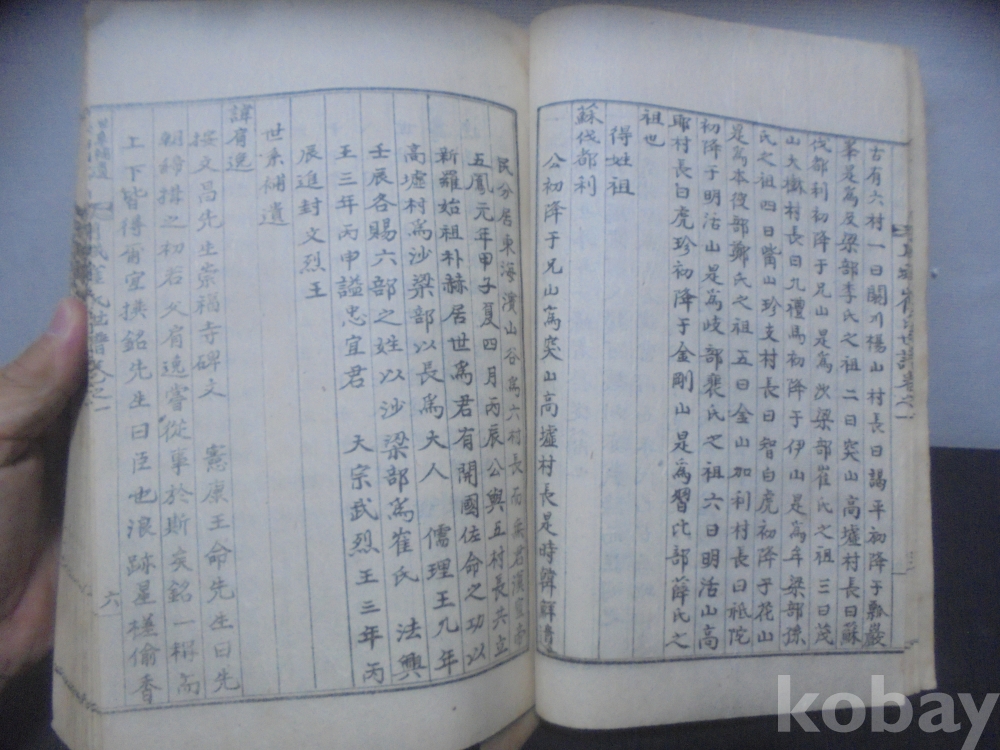 古有六村一曰閼川楊山村長曰謁平初降于瓢巖
峯是爲及梁部李氏之祖二曰突山高墟村長曰蘇
伐都利初降于兄山是爲沙梁部崔氏之祖三曰茂
山大樹村長曰九禮馬初降于伊山是爲牟梁部孫
氏之祖四曰觜山珍支村長曰智白虎初降于花山
是爲本彼部鄭氏之祖五曰金山加利村長曰祗陀
初降于明活山是爲岐部裵氏之祖六曰明活山高
耶村長曰虎珍初降于金剛山是爲習比部薛氏之
祖也
得姓祖
蘇伐都利
公初降于兄山爲突山高墟村長是時韓
民分居東海濱山谷爲六村長而
五鳳元年甲子夏四月丙辰公與五村長共立
新羅始祖朴赫居世爲君有開國佐命之功以
高墟村爲沙梁部以長爲大人 儒理王九年
壬辰各賜六部之姓以沙梁部爲崔氏 法興
王三年丙申謚忠宜君 大宗武烈王三年丙
辰進封文烈王
世系補遺
諱肩逸
按文昌先生崇福寺碑文 憲康王命先生曰先
朝締搆之初若父肩逸嘗從事於斯矣銘一稱而
上下皆得爾宜撰銘先生曰臣也浪跡星槎偷香
六
崔氏世譜卷之一
kobay